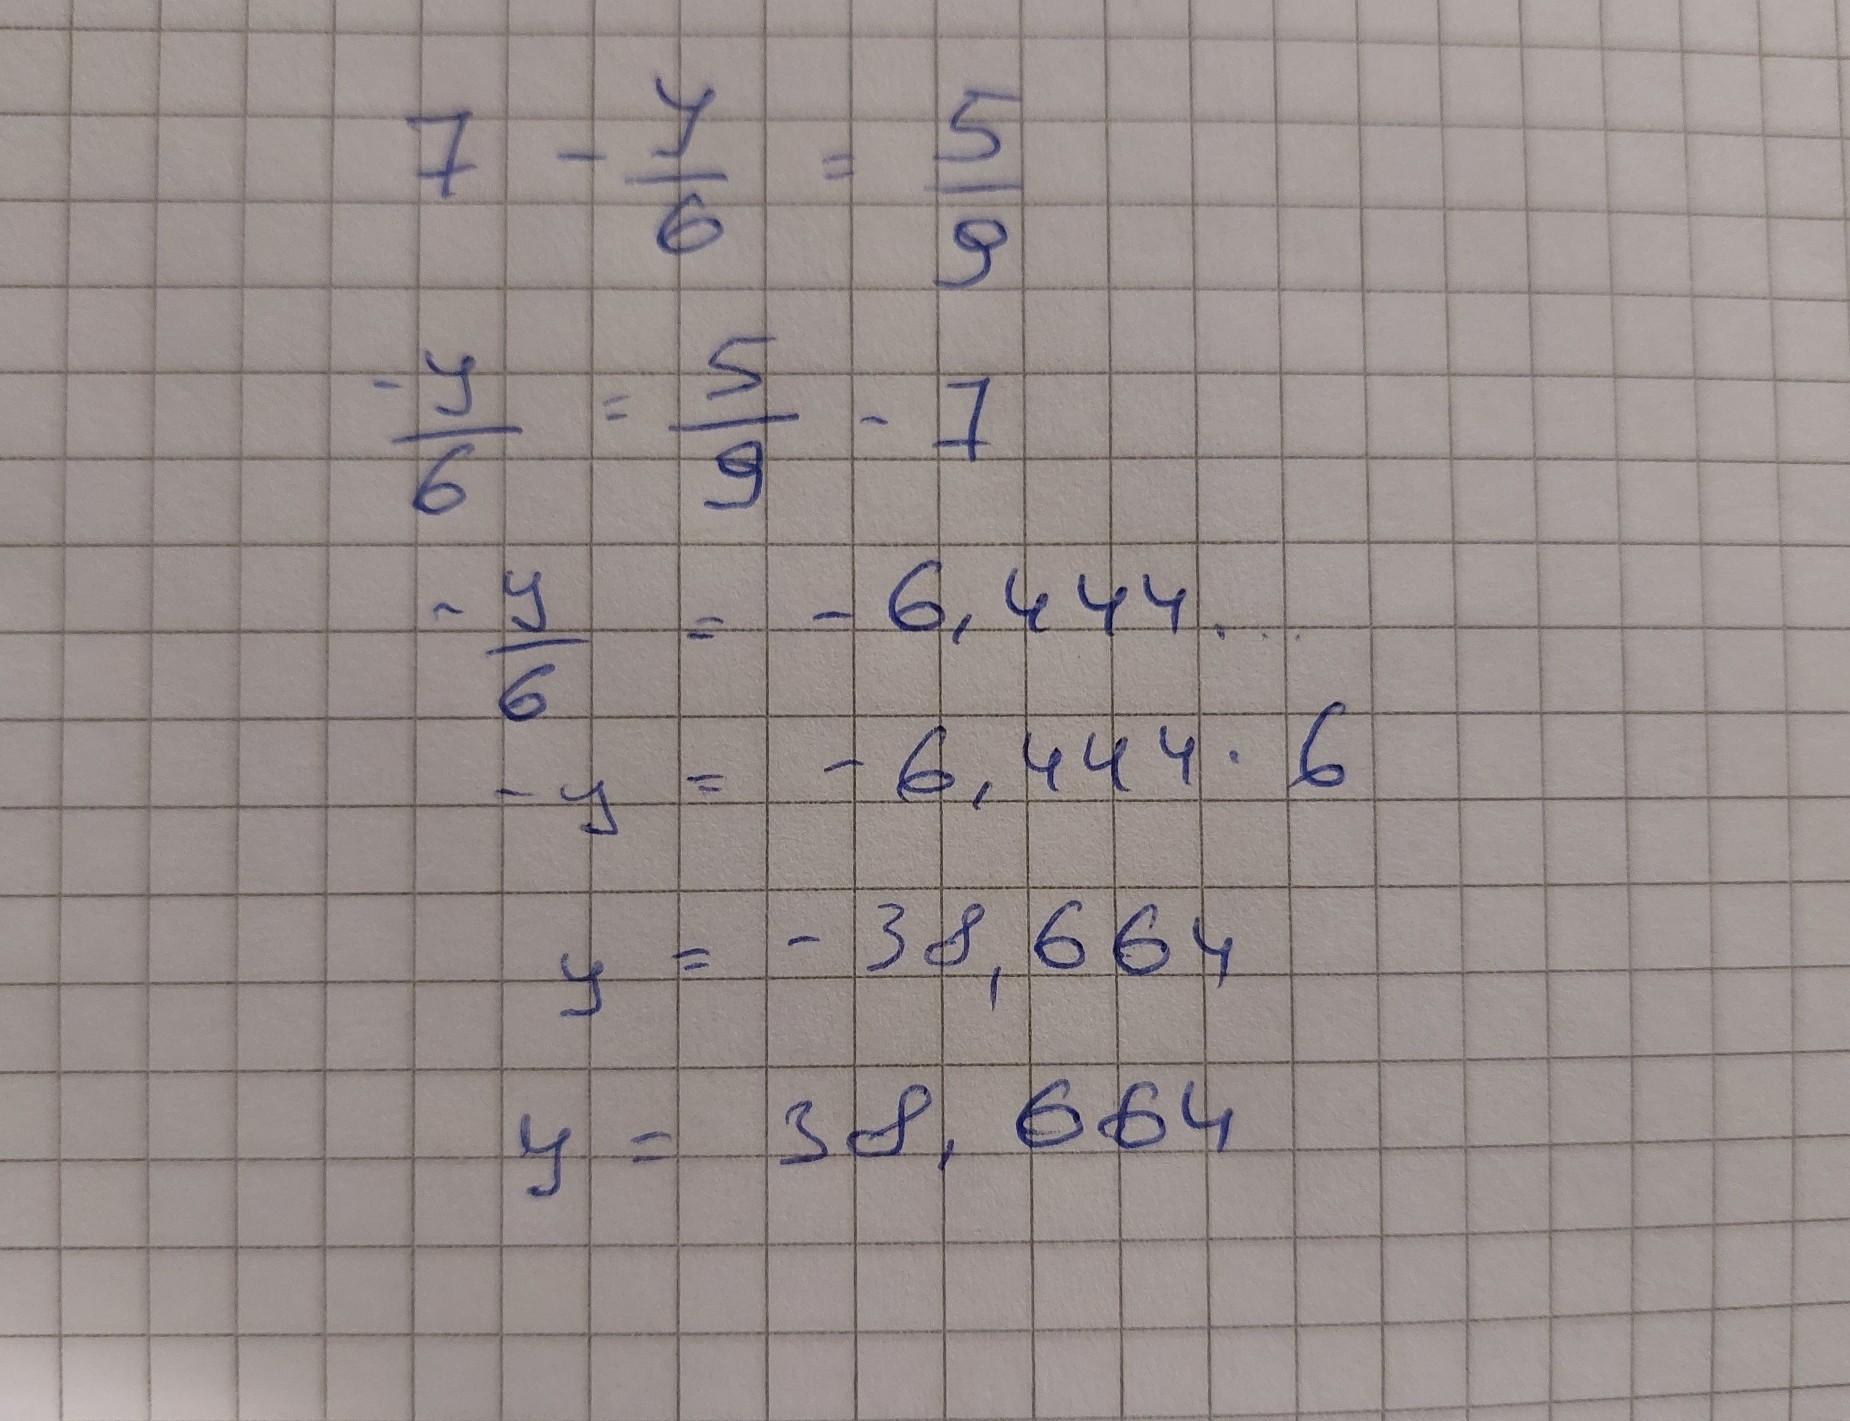 7 - y/6 = 5/9
-y/6 = 5/9 - 7
- y/6 = - 6,444...
- y = - 6,444 · 6
y = - 38,664
y = 38,664